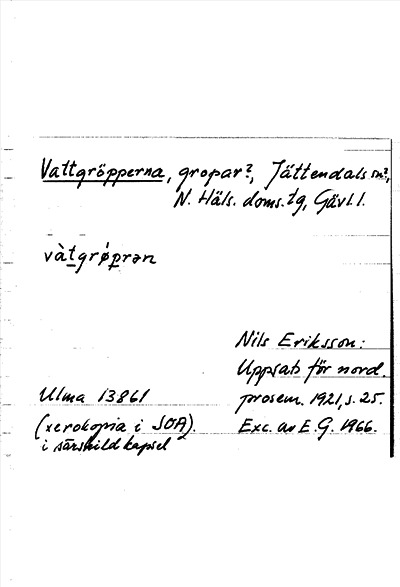 Vattgröpperna, gropar?, Jättendals sn?,
N. Häls. doms. tg, Gävl. l.
và̀tgrǿprən
Nils Eriksson:
Uppsats för nord.
Ulma 13861 prosem. 1921, s. 25.
(xerokopia i SOA). Exc. av E. G. 1966.
i särskild kapsel